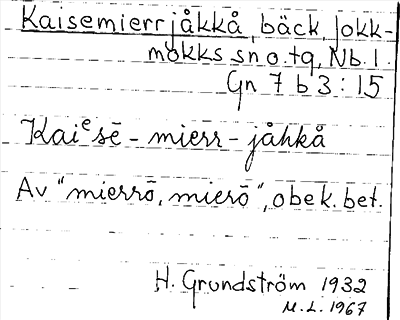 Kaisemierrjåkkå, bäck, Jokk-
mokks sn o. tg, Nb. l.
Gn 7 b 3:15
Kaiᵉsē - mierr - jåhkå
Av "mierrō, mierō", obek. bet.
H. Grundström 1932
M.L. 1967